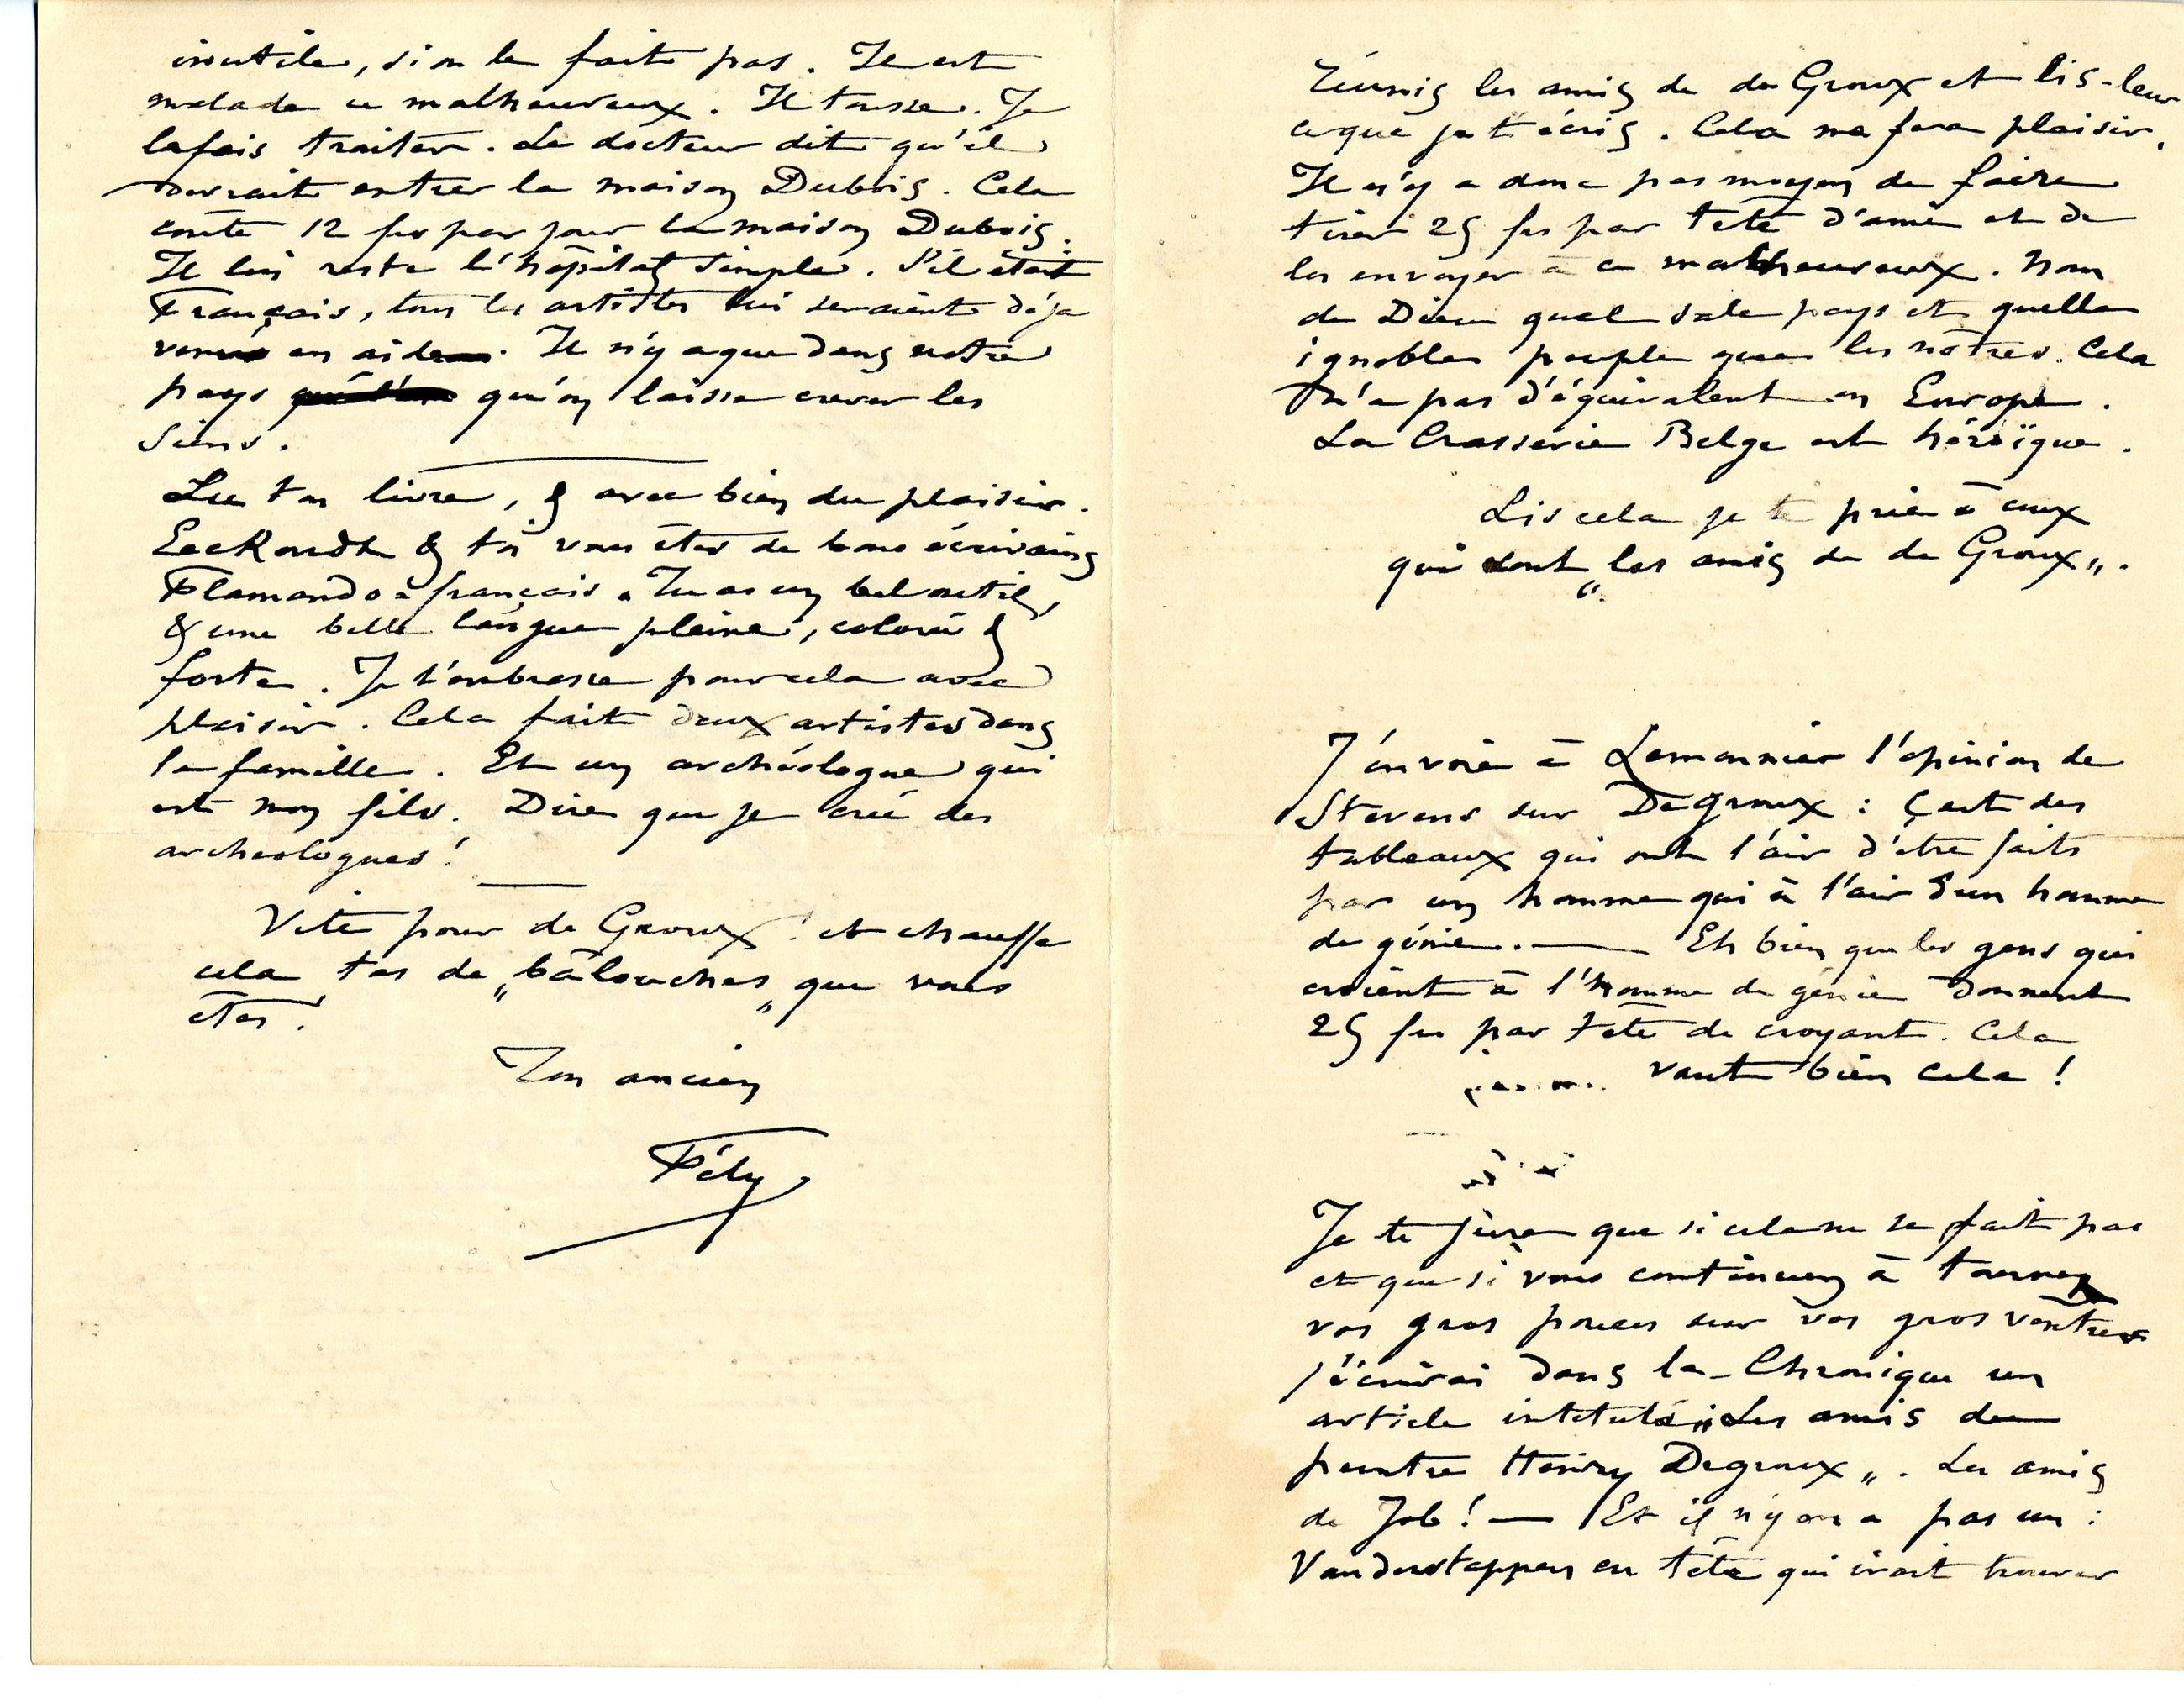 inutile, si on le fait pas. Il est
malade ce malheureux. Il tousse. Je
le fais traiter. Le docteur dit qu'il
devrait entrer la maison Dubois. Cela
coute 12 frs par jour la maison Dubois.
Il lui reste l'hôpital simple. S'il était
Français, tous les artistes lui seraient déja
venus en aide. Il n'y a que dans notre
pays qu'on laisse crever les
siens.
Lu ton livre, & avec bien du plaisir.
Eeckoudt & toi vous êtes de bons écrivains
Flamando-français. Tu as un bel outil,
& une belle langue pleine, colorée &
forte. Je t'embrasse pour cela avec
plaisir. Cela fait deux artistes dans
la famille. Et un archéologue qui
est mon fils. Dire que je crée des
archeologues!
Vite pour de Groux! et chauffe
cela tas de „bâlouches„ que vous
êtes.
Ton ancien
Fély
Réunis les amis de de Groux et lis-leur
ce que je t'écris. Cela me fera plaisir.
Il n'y a donc pas moyen de faire
tirer 25 frs par tête d'ami et de
les envoyer à ce malheureux. Nom
de Dieu quel sale pays et quelle
ignoble peuple que les nôtres. Cela
n'a pas d'équivalent en Europe.
La Crasserie Belge est héroïque.
Lis cela je te prie à ceux
qui sont „les amis de de Groux„.
J'envoie à Lemonnier l'opinion de
Stevens sur Degroux : C'est des
tableaux qui ont l'air d'être faits
par un homme qui à l'air d'un homme
de génie. — Eh bien que les gens qui
croient à l'homme de génie donnent
25 frs par tête de croyant. Cela
vaut bien cela !
Je te jure que si cela ne se fait pas
et que si vous continuez à tourner
vos gros pouces sur vos gros ventres
j'écrirai dans la Chronique un
article intitulé „Les amis du
peintre Henry Degroux„. Les amis
de Job! — Et il n'y en a pas un :
Vanderstappen en tête qui irait trouver